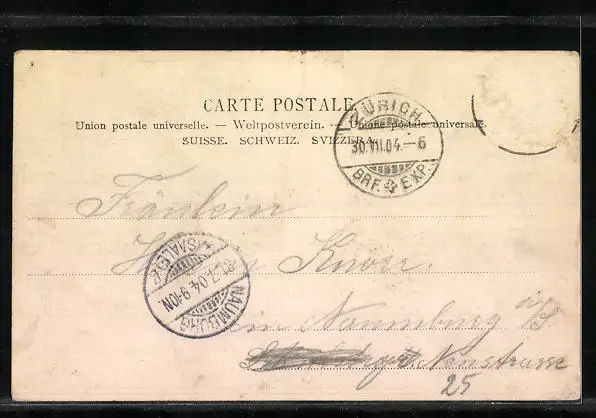 CARTE POSTALE
Union postale universelle. — Weltpostverein. — Unione postale universale.
SUISSE. SCHWEIZ. SVIZZERA.
ZÜRICH
30.VII.04.—6
BRF. EXP.
Fräulein
Knorr
NAUMBURG
31.7.04. 9-10N
(SAALE)
in Naumburg a/S.
Neustrasse
25